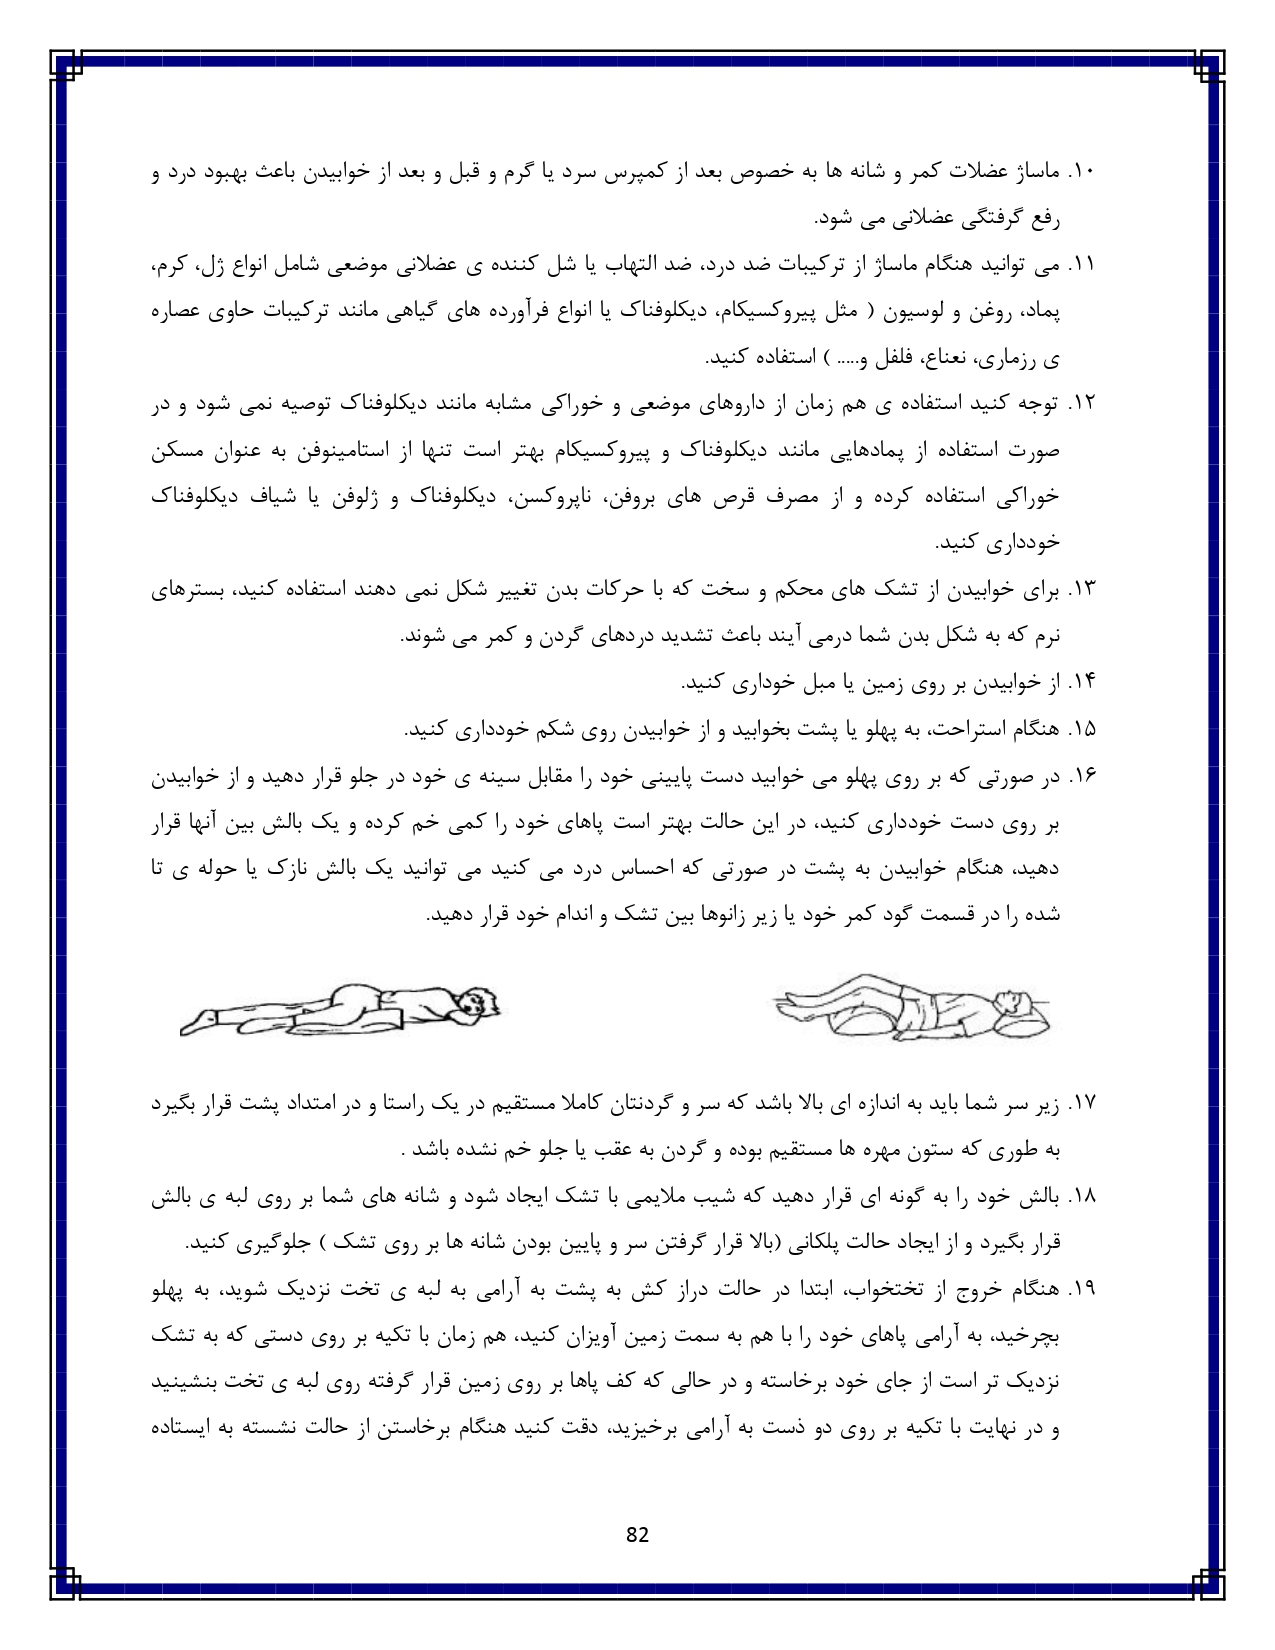 ۱۰. ماساژ عضلات کمر و شانه ها به خصوص بعد از کمپرس سرد یا گرم و قبل و بعد از خوابیدن باعث بهبود درد و
رفع گرفتگی عضلانی می شود.
۱۱. می توانید هنگام ماساژ از ترکیبات ضد درد، ضد التهاب یا شل کننده ی عضلانی موضعی شامل انواع ژل، کرم،
پماد، روغن و لوسیون ( مثل پیروکسیکام، دیکلوفناک یا انواع فرآورده های گیاهی مانند ترکیبات حاوی عصاره
ی رزماری، نعناع، فلفل و..... ) استفاده کنید.
۱۲. توجه کنید استفاده ی هم زمان از داروهای موضعی و خوراکی مشابه مانند دیکلوفناک توصیه نمی شود و در
صورت استفاده از پمادهایی مانند دیکلوفناک و پیروکسیکام بهتر است تنها از استامینوفن به عنوان مسکن
خوراکی استفاده کرده و از مصرف قرص های بروفن، ناپروکسن، دیکلوفناک و ژلوفن یا شیاف دیکلوفناک
خودداری کنید.
۱۳. برای خوابیدن از تشک های محکم و سخت که با حرکات بدن تغییر شکل نمی دهند استفاده کنید، بسترهای
نرم که به شکل بدن شما درمی آیند باعث تشدید دردهای گردن و کمر می شوند.
۱۴. از خوابیدن بر روی زمین یا مبل خوداری کنید.
۱۵. هنگام استراحت، به پهلو یا پشت بخوابید و از خوابیدن روی شکم خودداری کنید.
۱۶. در صورتی که بر روی پهلو می خوابید دست پایینی خود را مقابل سینه ی خود در جلو قرار دهید و از خوابیدن
بر روی دست خودداری کنید، در این حالت بهتر است پاهای خود را کمی خم کرده و یک بالش بین آنها قرار
دهید، هنگام خوابیدن به پشت در صورتی که احساس درد می کنید می توانید یک بالش نازک یا حوله ی تا
شده را در قسمت گود کمر خود یا زیر زانوها بین تشک و اندام خود قرار دهید.
۱۷. زیر سر شما باید به اندازه ای بالا باشد که سر و گردنتان کاملا مستقیم در یک راستا و در امتداد پشت قرار بگیرد
به طوری که ستون مهره ها مستقیم بوده و گردن به عقب یا جلو خم نشده باشد .
۱۸. بالش خود را به گونه ای قرار دهید که شیب ملایمی با تشک ایجاد شود و شانه های شما بر روی لبه ی بالش
قرار بگیرد و از ایجاد حالت پلکانی (بالا قرار گرفتن سر و پایین بودن شانه ها بر روی تشک ) جلوگیری کنید.
۱۹. هنگام خروج از تختخواب، ابتدا در حالت دراز کش به پشت به آرامی به لبه ی تخت نزدیک شوید، به پهلو
بچرخید، به آرامی پاهای خود را با هم به سمت زمین آویزان کنید، هم زمان با تکیه بر روی دستی که به تشک
نزدیک تر است از جای خود برخاسته و در حالی که کف پاها بر روی زمین قرار گرفته روی لبه ی تخت بنشینید
و در نهایت با تکیه بر روی دو ذست به آرامی برخیزید، دقت کنید هنگام برخاستن از حالت نشسته به ایستاده
82